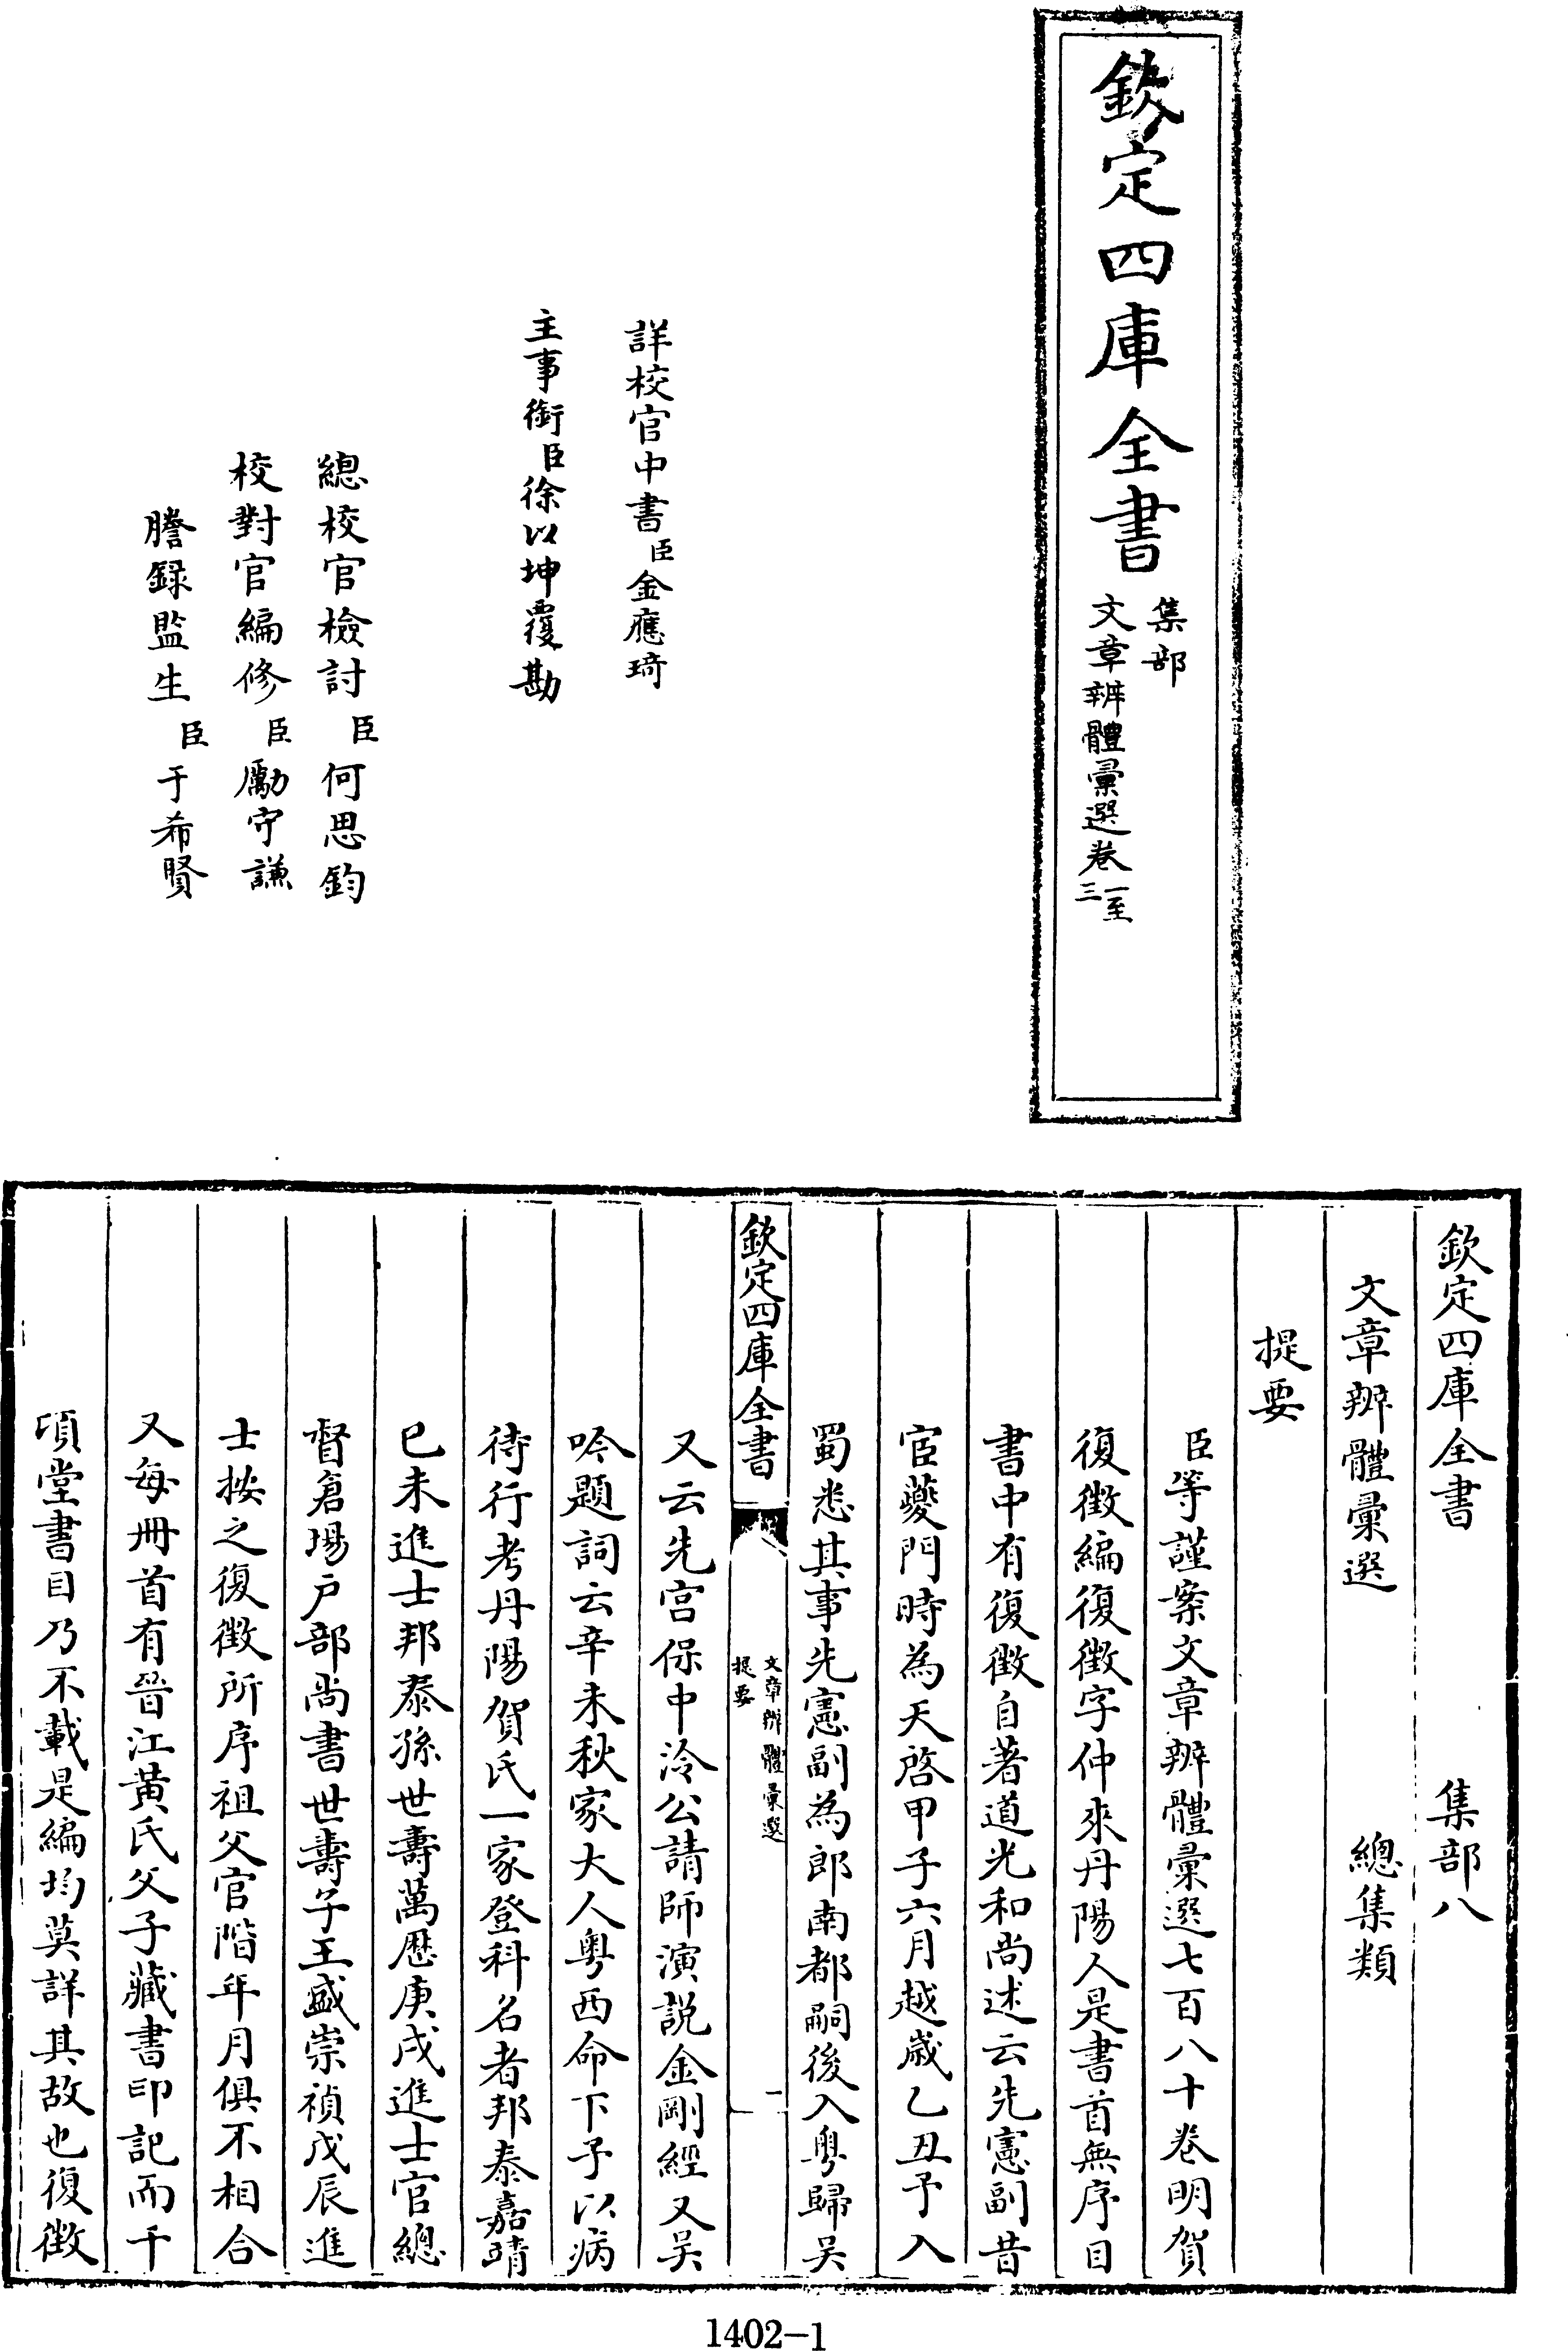 欽定四庫全書
集部
文章辨體彙選卷一至三
詳校官中書臣金應琦
主事銜臣徐以坤覆勘
總校官檢討臣何思鈞
校對官編修臣勵守謙
謄録監生臣于希賢
欽定四庫全書 集部八
文章辨體彙選 總集類
提要
臣等謹案文章辨體彙選七百八十卷明賀
復徴編復徴字仲來丹陽人是書首無序目
書中有復徴自著道光和尚述云先憲副昔
宦夔門時為天啓甲子六月越歲乙丑予入
蜀悉其事先憲副為郎南都嗣後入粤歸吴
欽定四庫全書
文章辨體彙選
提要
一
又云先宫保中泠公請師演説金剛經又吴
吟題詞云辛未秋家大人粤西命下予以病
待行考丹陽賀氏一家登科名者邦泰嘉靖
已未進士邦泰孫世壽萬厯庚戌進士官總
督倉場户部尚書世壽子王盛崇禎戊辰進
士按之復徴所序祖父官階年月俱不相合
又每冊首有晉江黄氏父子藏書印記而千
頃堂書目乃不載是編均莫詳其故也復徴
1402-1